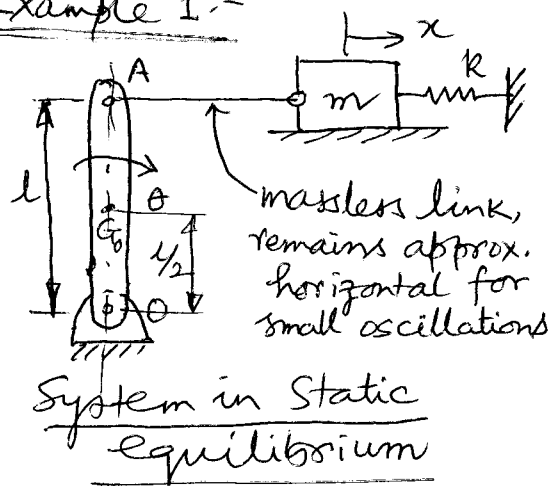 Example 1:-
x
A
k
m
l
θ
G₀
l/2
O
massless link,
remains approx.
horizontal for
small oscillations
System in Static
equilibrium